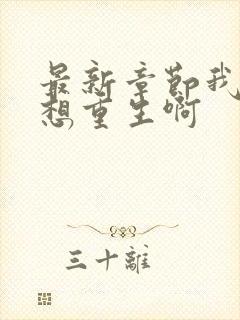 最新章節我
想重生啊
三十離